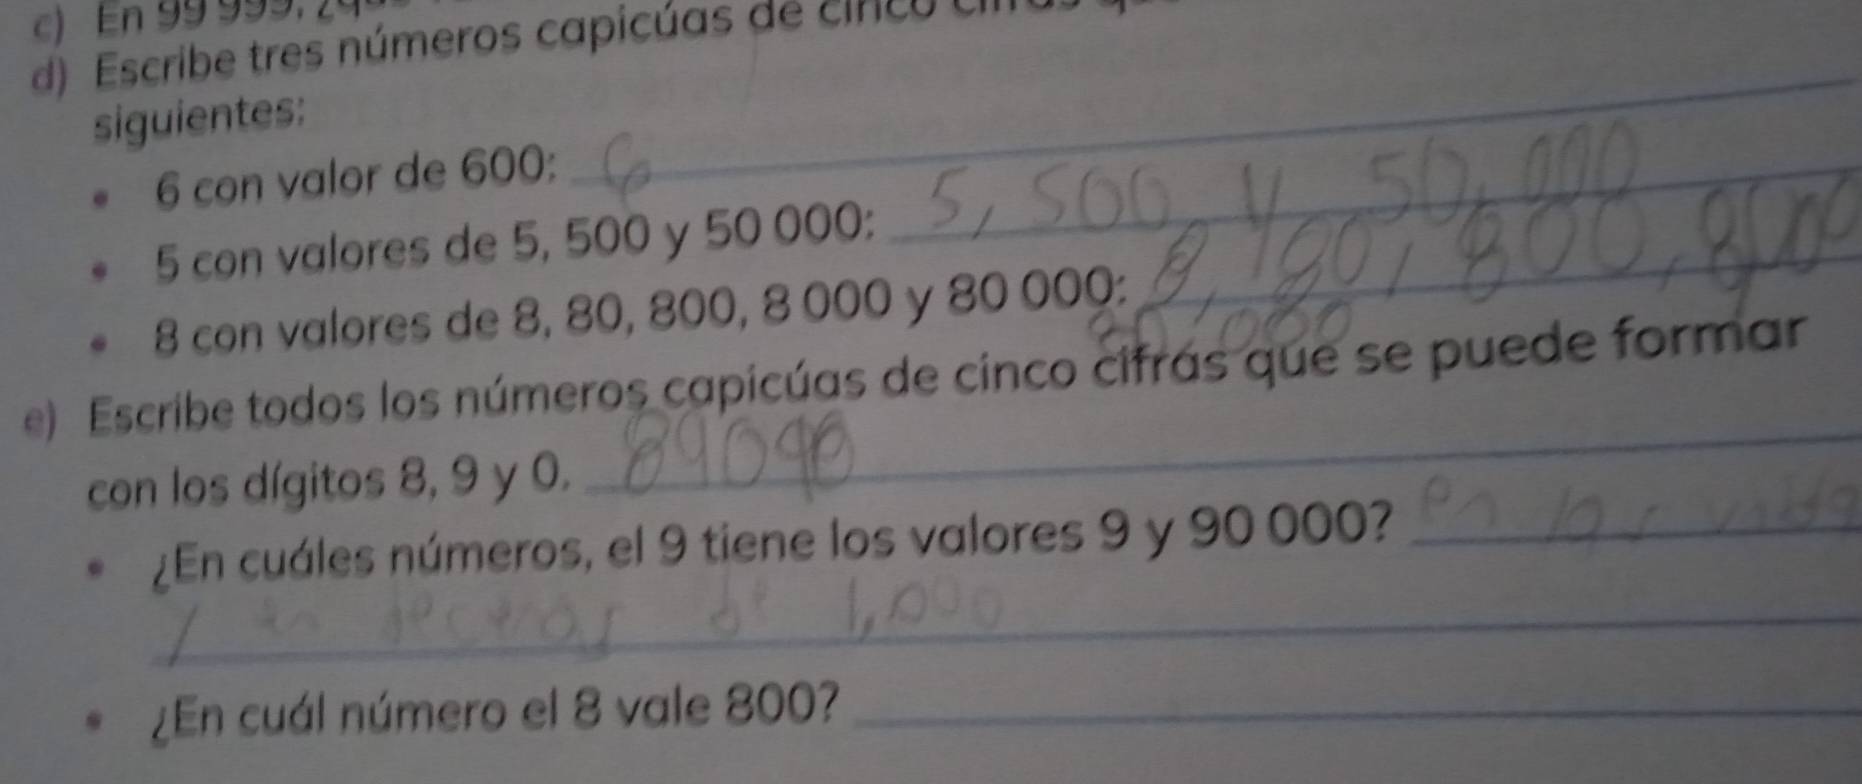 c) En 99 999,
d) Escribe tres números capicúas de cinco
siguientes:
• 6 con valor de 600: 6
• 5 con valores de 5, 500 y 50 000: 5, 500 y 50,000
• 8 con valores de 8, 80, 800, 8 000 y 80 000: 8, 180, 800, 8000
80,000
e) Escribe todos los números capicúas de cinco cifras que se puede formar
con los dígitos 8, 9 y 0. 89098
• ¿En cuáles números, el 9 tiene los valores 9 y 90 000? en las
y en decenas de 1,000
• ¿En cuál número el 8 vale 800?